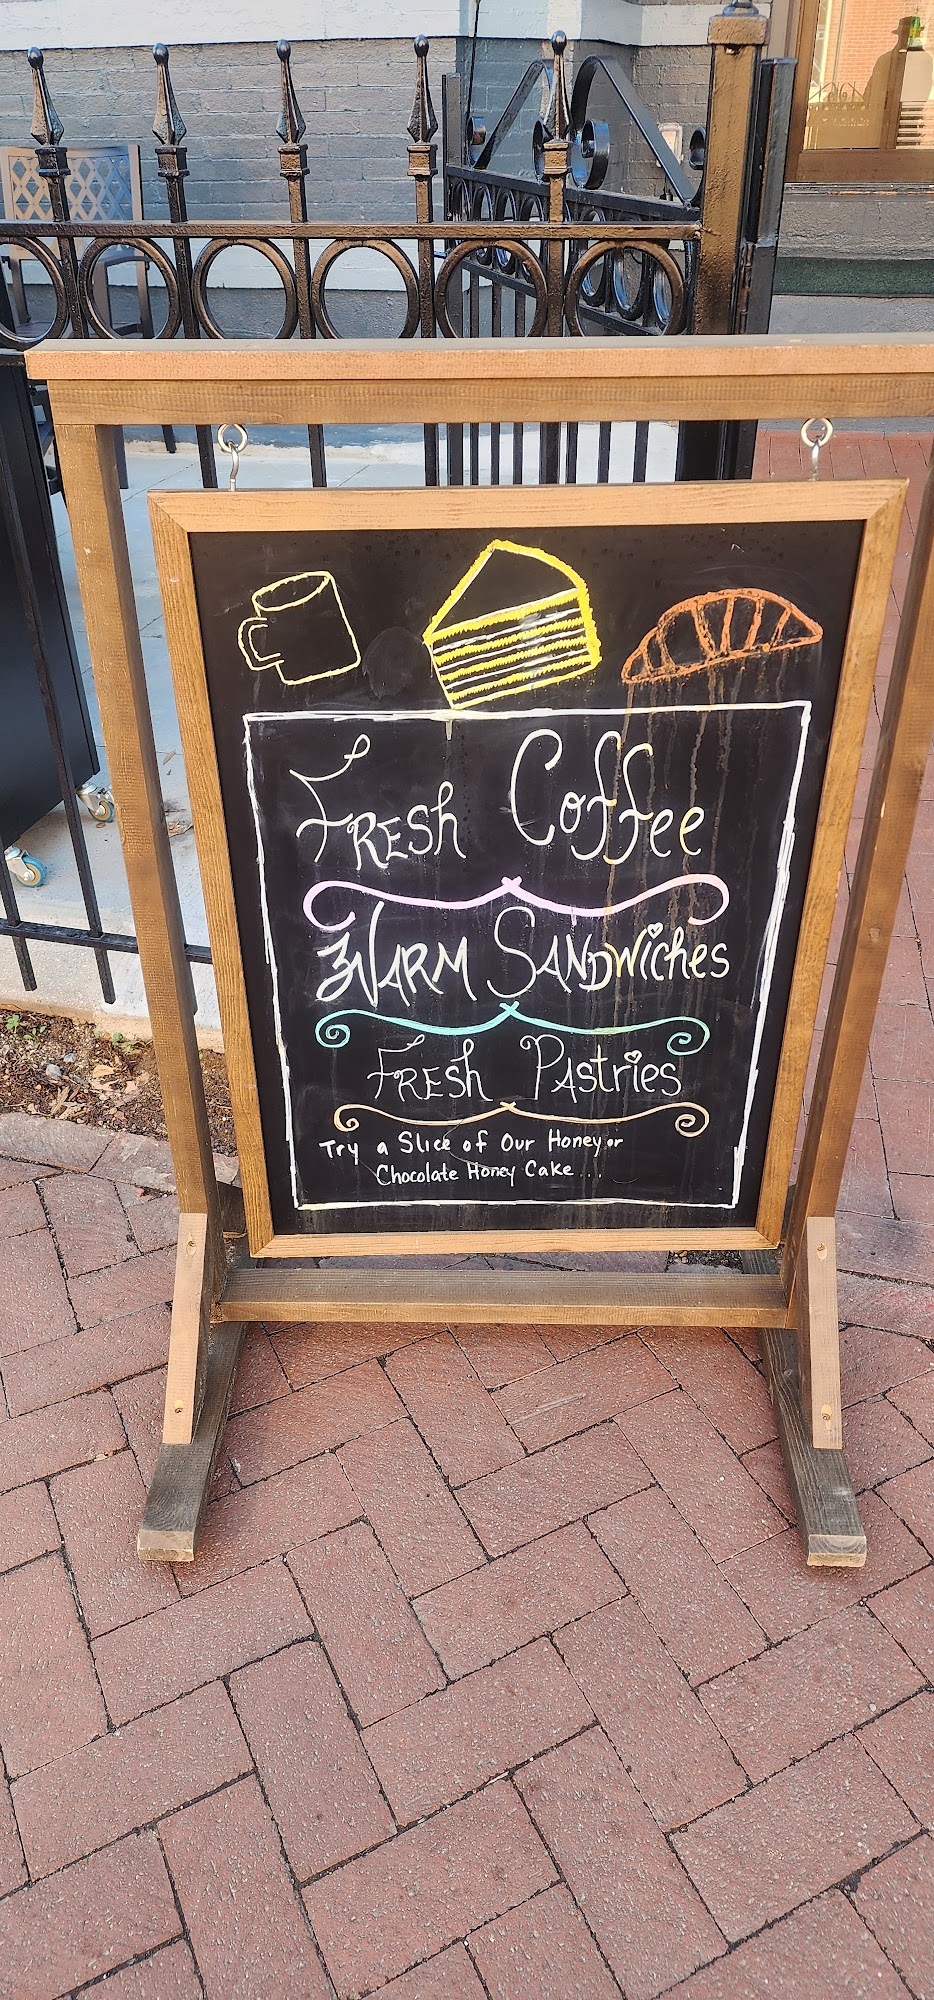 Fresh Coffee
Warm Sandwiches
Fresh Pastries
Try a Slice of Our Honey or
Chocolate Honey Cake...